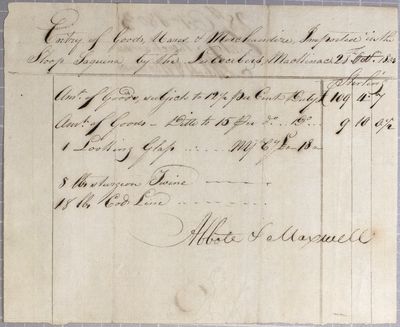 Entry of Goods, Wares & Merchandize, Imported in the
Sloop Saguina, by the Subscribers, Mackinac 25th Octr. 18
Sterling
Amt. of Goods, subject to 12½ Per Cent Duty £ 109 4 7
Amt. of Goods – Ditto to 15 Per do. .. Do. .. 9 10 0½
1 Looking Glass
8 lbs Sturgeon Twine
18 lbs Cod Line
Abbott & Maxwell